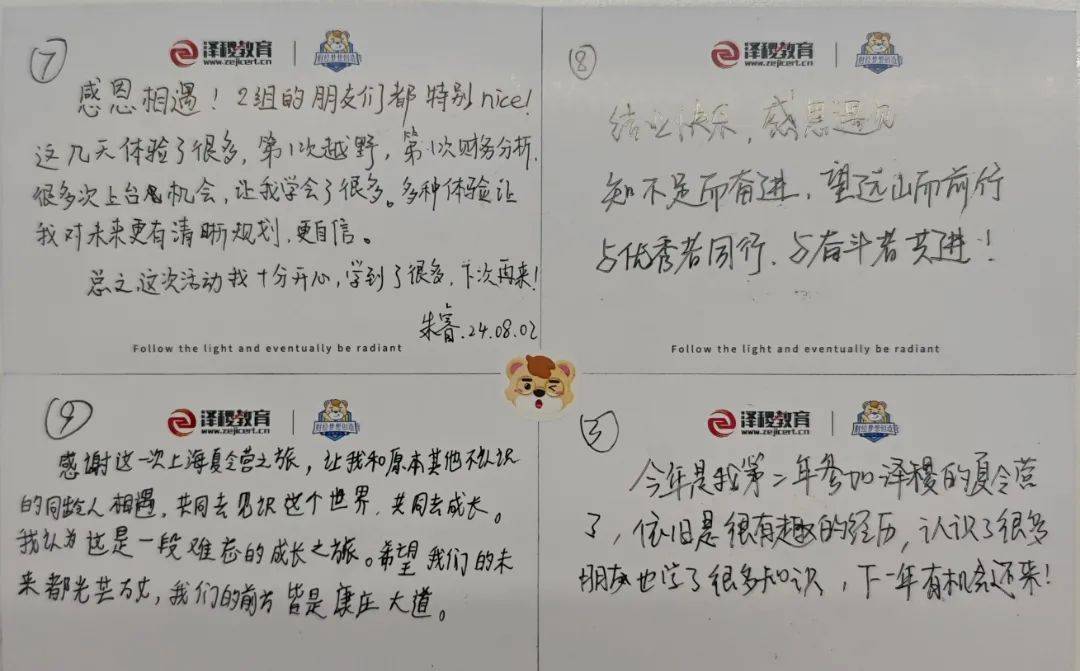 ⑦
泽稷教育
www.zejicert.cn
财经梦想创造营
感恩相遇！2组的朋友们都特别nice！
这几天体验了很多，第1次越野，第1次财务分析，
很多次上台机会，让我学会了很多。多种体验让
我对未来更有清晰规划，更自信。
总之这次活动我十分开心，学到了很多，下次再来！
朱睿.24.08.02
Follow the light and eventually be radiant
⑧
泽稷教育
www.zejicert.cn
结业快乐，感恩遇见
知不足而奋进，望远山而前行
与优秀者同行，与奋斗者共进！
Follow the light and eventually be radiant
⑨
泽稷教育
www.zejicert.cn
财经梦想创造营
感谢这一次上海夏令营之旅，让我和原本其他不认识
的同龄人相遇，共同去见识这个世界，共同去成长。
我认为这是一段难忘的成长之旅。希望我们的未
来都光芒万丈，我们的前方皆是康庄大道。
⑤
泽稷教育
www.zejicert.cn
今年是我第二年参加泽稷的夏令营
了，依旧是很有趣的经历，认识了很多
朋友也学了很多知识，下一年有机会还来！